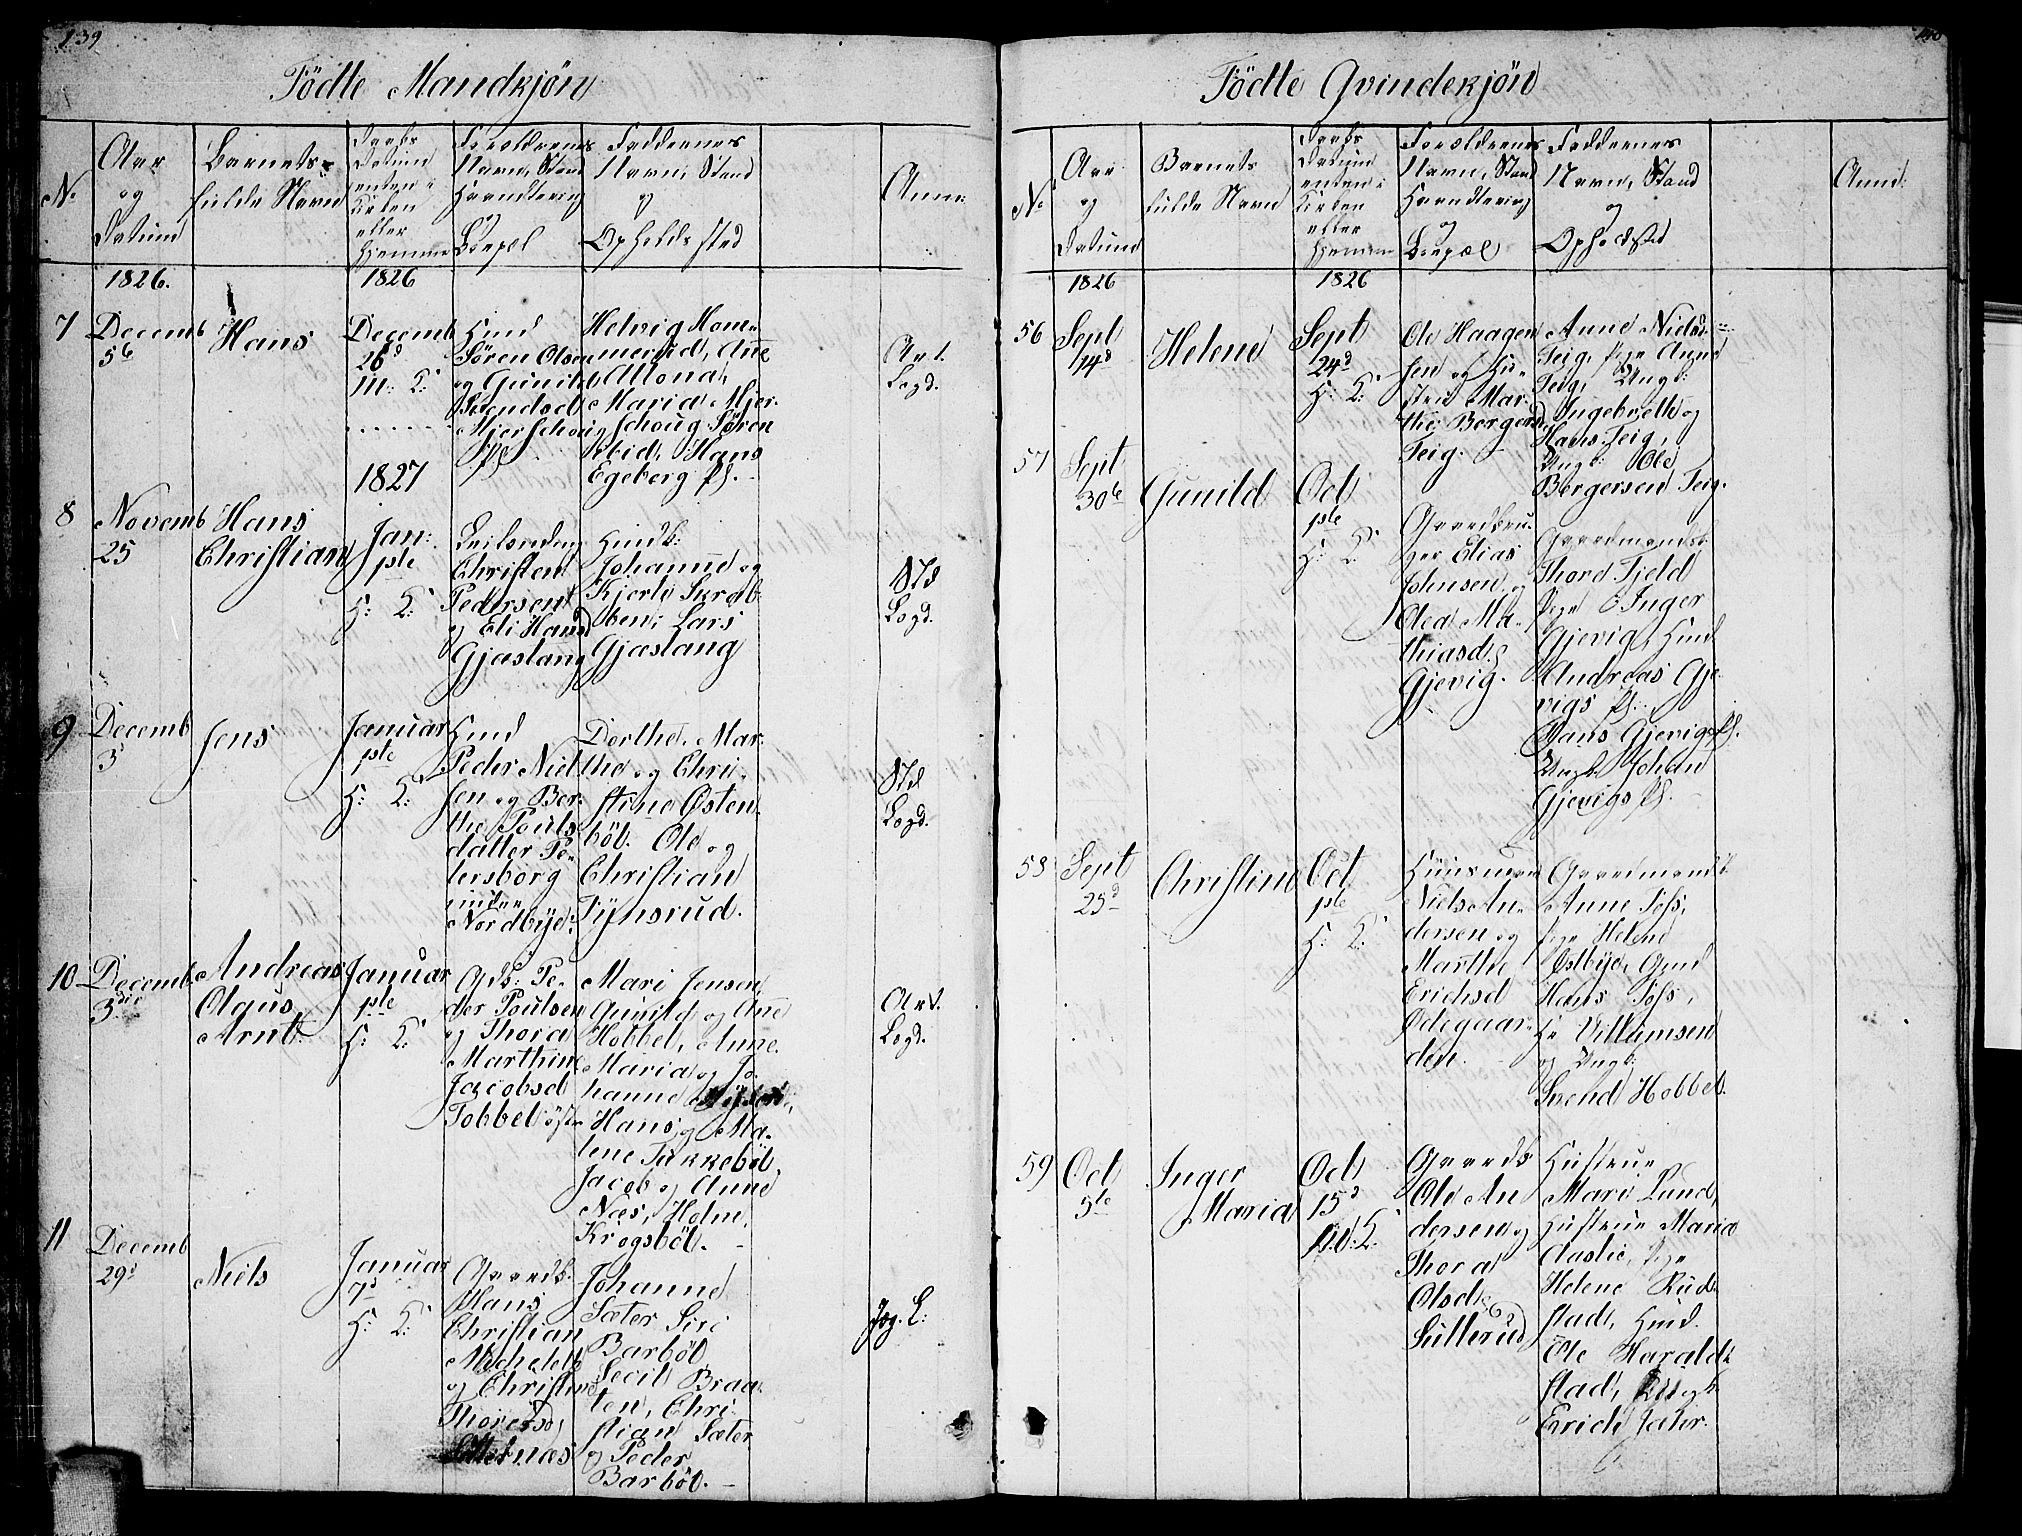 139
Födte Mandkjön
No
Aar
og
Datum
Barnets
fulde Navn
Daabs
Datum
enten i
Kirken
eller
hjemme
Forældrenes
Navn, Stand
Haandtering
og
Bopæl
Faddernes
Navn, Stand
og
Opholds sted
Anm:
1826.
1826
7
Decemb
5te
Hans
Decemb
26d
M: K:
Huusmd
Sören Olsen
og Gunild
Svendsd
Mjerschoug
ps
Helvig Hom-
mersid, Ane
Mona,
Maria Mjer-
schoug Sören
ibid, Hans
Egeberg ps.
Art.
Logd.
1827
8
Novemb
25
Hans
Christian
Jan:
1ste
H: K:
Leilending
Christen
Pedersen
og Eli Hansd
Gjæslang
Huusmdk:
Johanne og
Kjersti Skrab-
ben, Lars
Gjæslang
Std
Logd.
9
Decemb
3
Jens
Januar
1ste
H: K:
Huusmd
Peder Niel-
sen og Ber-
the Pouls-
datter Pe-
tersborg
under
Nordbye.
Dorthe, Mar-
the og Chri-
stine Østen-
böl. Ole og
Christian
Fjynsrud.
Std
Logd.
10
Decemb
3die
Andreas
Olaus
Arnt.
Januar
1ste
H: K:
Gdb: Pe-
der Poulsen
og Thora
Marthine
Jacobsd
Tobbel östre
Mari Jensen,
Gunild og Ane
Hobbel, Anne
Maria og Jo-
hanne
Hans og Ma-
lene Tukkeböl,
Jacob og Anne
Næs, Holm
Krogsböl.
Art.
Logd.
11
Decemb
29d
Niels
Januar
7d
H: K:
Gaardb.
Hans
Christian
Michelets
og Christine
Thoresd
Sitternæs
Johanne
Sæter Siri
Barböl
Secil Braa-
ten, Chri-
stian Sæter
og Peder
Barböl.
Jæg. L:
140
Födte Qvindekjön
No
Aar
og
Datum
Barnets
fulde Navn
Daabs
Datum
enten i
Kirken
eller
hjemme
Forældrenes
Navn, Stand
Haandtering
og
Bopæl
Faddernes
Navn, Stand
og
Opholdsted
Anm.
1826
1826
56
Sept
14d
Helene
Sept
24d
H: K:
Ole Haagen-
sen og Hu-
stru Mar-
the Bergersd
Teig.
Anne Nielsd
Teig, Pige Anne
Teig, Ungk:
Ingebreth og
Hans Teig,
Ungk: Ole
Bergersen Teig.
57
Sept
30te
Gunild
Oct
1ste
H: K:
Gaardbru-
ger Elias
Johnsen og
Olea Ma-
thiasd
Gjevig.
Gaardmandsk:
Thore Fjeld
Pige Inger
Gjevig, Huusmd
Andreas Gje-
vigs ps.
Hans Gjevigs ps.
Ungk: Johan
Gjevigs ps.
58
Sept
25d
Christine
Oct
1ste
H: K:
Huusmand
Niels An-
dersen og
Marthe
Erichsd
Ødegaar-
den.
Gaardmandsk.
Anne Foss,
Pige Helene
Østbye, Gmd
Hans Foss,
Hr Villumsen
og Ungk:
Svend Hobbel.
59
Oct
5te
Inger
Maria
Oct
15d
M: K:
Gaardb
Ole An-
dersen og
Thora
Olsd
Sutterud
Hustrue
Mari Lund,
Hustrue Maria
Aaslie, Pige
Helene Rud-
stad, Huusmd.
Ole Harald-
stad, Ungk:
Erich Jahr.